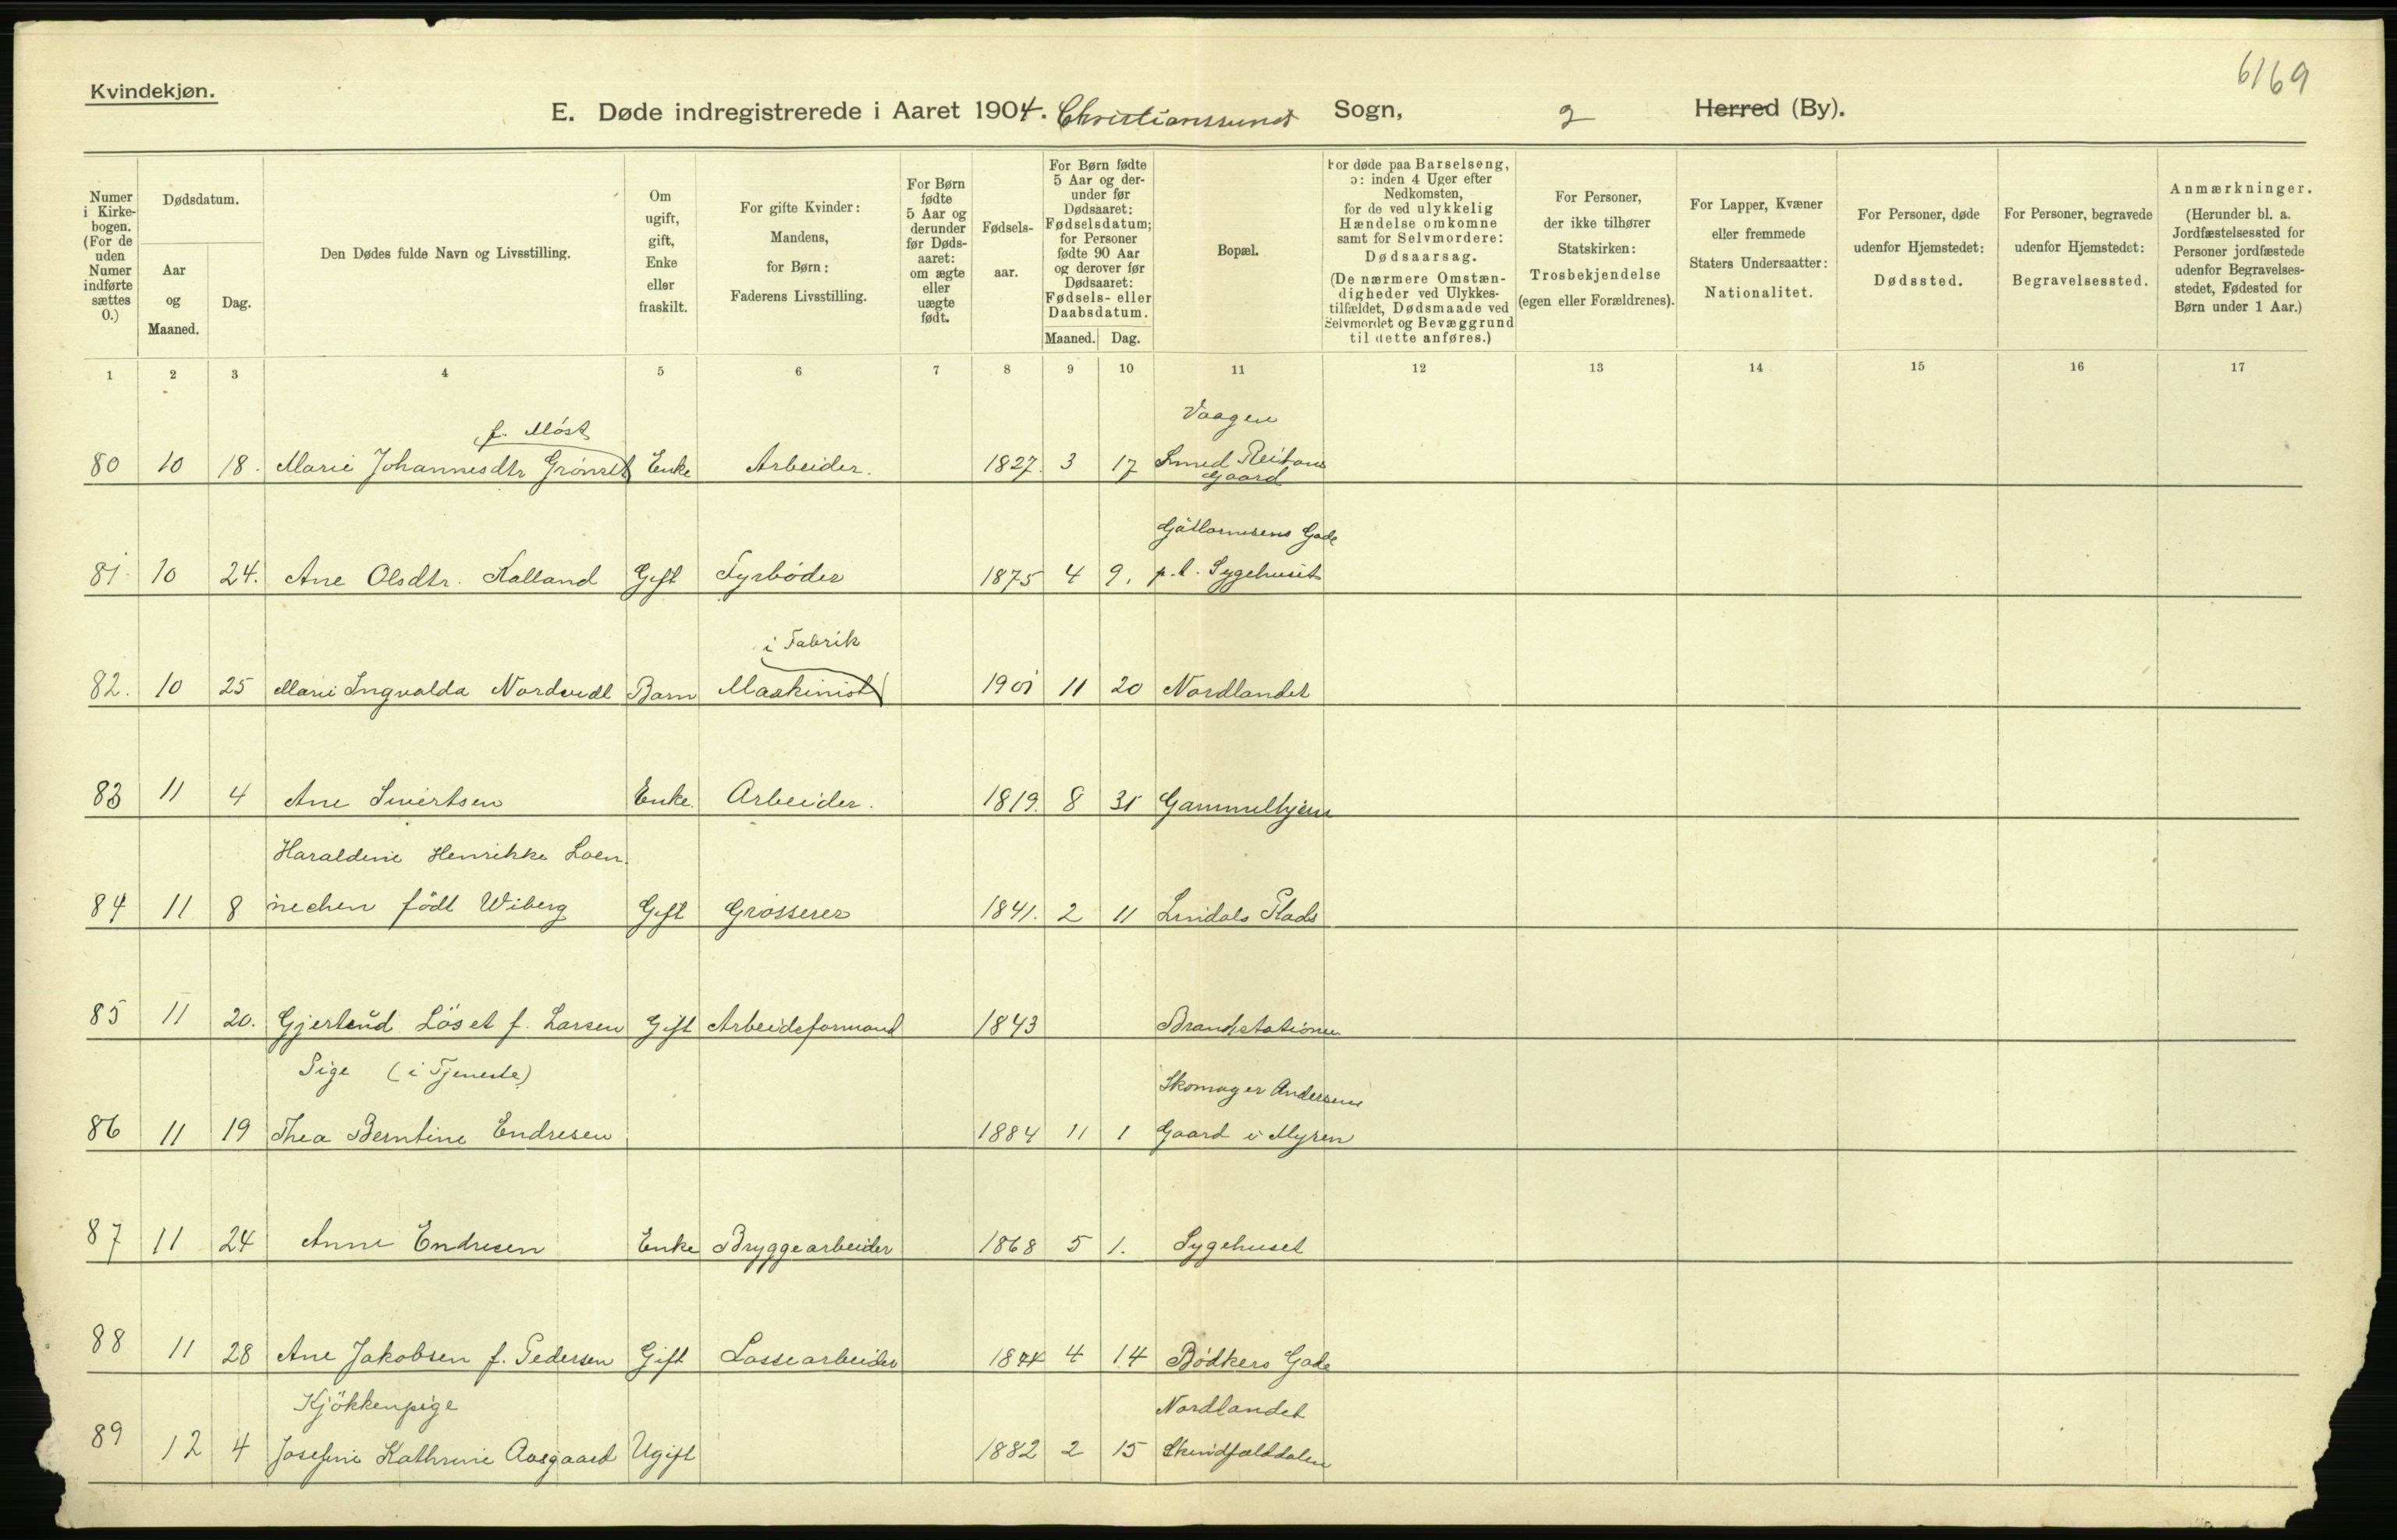 6169
Kvindekjøn.
E. Døde indregistrerede i Aaret 1904. Christianssund Sogn, 2 Herred (By).
Numer i Kirkebogen. (For de uden Numer indførte sættes 0.)
Dødsdatum.
Aar og Maaned.
Dag.
Den Dødes fulde Navn og Livsstilling.
Om ugift, gift, Enke eller fraskilt.
For gifte Kvinder: Mandens, for Børn: Faderens Livsstilling.
For Børn fødte 5 Aar og derunder før Dødsaaret: om ægte eller uægte født.
Fødselsaar.
For Børn fødte 5 Aar og derunder før Dødsaaret: Fødselsdatum; for Personer fødte 90 Aar og derover før Dødsaaret: Fødsels- eller Daabsdatum.
Maaned. Dag.
Bopæl.
For døde paa Barselseng, ɔ: inden 4 Uger efter Nedkomsten, for de ved ulykkelig Hændelse omkomne samt for Selvmordere: Dødsaarsag. (De nærmere Omstændigheder ved Ulykkestilfældet, Dødsmaade ved Selvmordet og Bevæggrund til dette anføres.)
For Personer, der ikke tilhører Statskirken: Trosbekjendelse (egen eller Forældrenes).
For Lapper, Kvæner eller fremmede Staters Undersaatter: Nationalitet.
For Personer, døde udenfor Hjemstedet: Dødssted.
For Personer, begravede udenfor Hjemstedet: Begravelsessted.
Anmærkninger. (Herunder bl. a. Jordfæstelsessted for Personer jordfæstede udenfor Begravelsesstedet, Fødested for Børn under 1 Aar.)
1 2 3 4 5 6 7 8 9 10 11 12 13 14 15 16 17
f. Móst Vaagen
80 10 18. Marie Johannesdtr Grönset Enke Arbeider. 1827. 3 17 Smed Reitans
Gaard
Gade
81 10 24. Ane Olsdtr. Kalland Gift Fyrbøder 1875 4 9. p.t. Sygehuset
i Fabrik
82. 10 25 Marie Ingvalda Nordvedt Barn Maskinist 1901 11 20 Nordlandet
83 11 4 Ane Sivertsen Enke. Arbeider. 1819. 8 31
Haraldine Henrikke Loen
84 11 8 nechen födt Wiberg Gift Grosserer 1841. 2 11 Lindals Plads
85 11 20. Gjertrud Löset f. Larsen Gift Arbeidsformand 1843 Brandstationen
Pige (i Tjeneste) Skomager Andersens
86 11 19 Thea Berntine Endresen 1884 11 1 Gaard i Myren
87 11 24 Anne Endresen Enke Bryggearbeider 1868 5 1. Sygehuset
88 11 28 Ane Jakobsen f. Pedersen Gift Lossearbeider 4 14 Bödkers Gade
Kjökkenpige Nordlandet
89 12 4 Josefine Kathrine Aasgaard Ugift 1882 2 15 Skindfælddalen